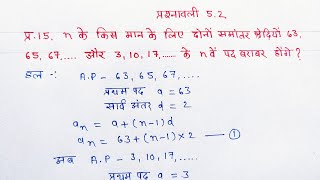 प्रश्नावली 5.2
प्र.15. n के किस मान के लिए दोनों समांतर श्रेढियों 63,
65, 67,.... और 3, 10, 17,...... के n वें पद बराबर होंगे?
हल -: A.P - 63, 65, 67,.....
प्रथम पद a = 63
सार्व अंतर d = 2
an = a + (n-1)d
an = 63 + (n-1) × 2 — ①
अब A.P - 3, 10, 17,.....
प्रथम पद a = 3